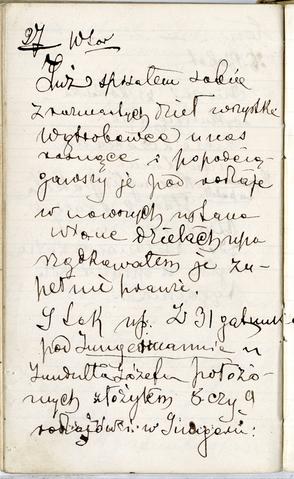 27 Wtor
Już spisałem sobie
z rozmaitych dzieł wszystkie
Wątrobowce u nas
rosnące i popodcią-
gawszy je pod rodzaje
w nowszych ustano
wione dziełach upo
rządkowałem je zu-
pełnie prawie.
I tak np. Z 31 gatunków
pod Jungermannia u
Jundziłła Józefa położo-
nych złożyłem 8 czy 9
rodzajów: w